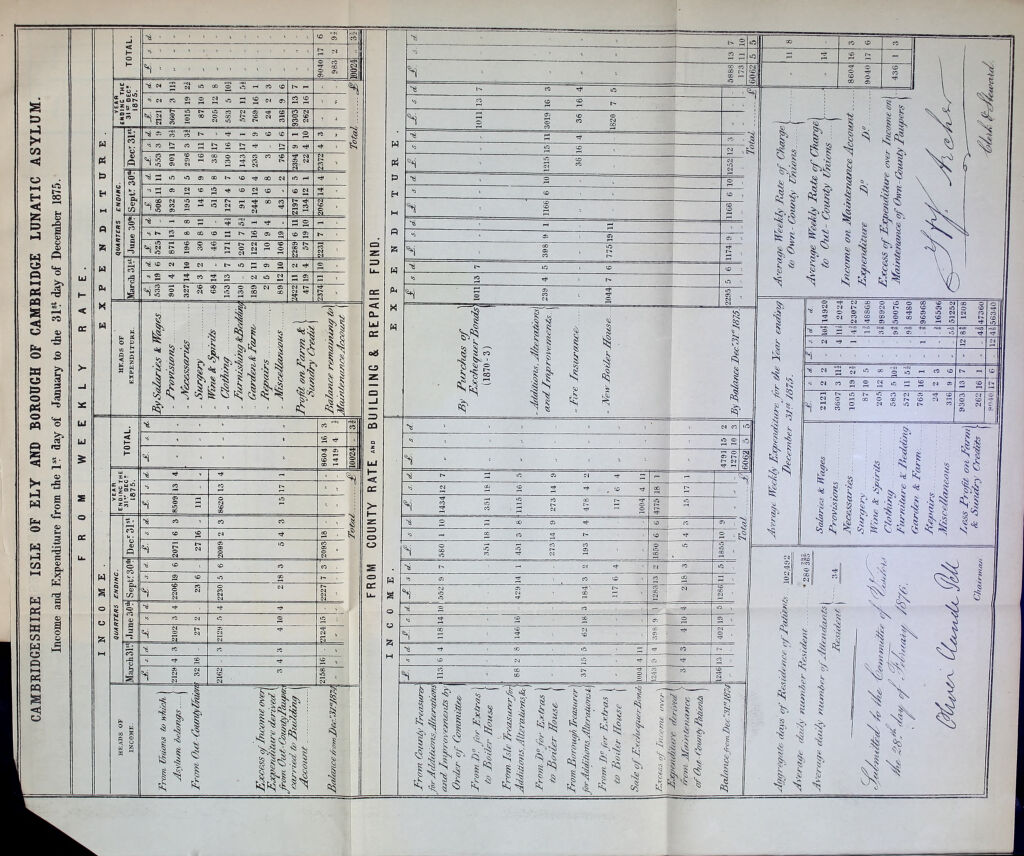 CAMBRIDGESHIRE ISLE OF ELY AND BOROUGH OF CAMBRIDGE LUNATIC ASYLUM.
Income and Expenditure from the 1st day of January to the 31st day of December 1875.
FROM WEEKLY RATE.
INCOME.
HEADS OF INCOME.
QUARTERS ENDING.
March 31st June 30th Septr. 30th Decr. 31st
YEAR ENDING THE 31st DECr 1875.
TOTAL.
£ s d
From Unions to which Asylum belongs 2129 4 3 2102 3 4 2206 19 6 2071 6 3 8509 13 4
From Out County Unions 32 16 - 27 2 - 23 6 - 27 16 - 111 - -
2162 - 3 2129 5 4 2230 5 6 2099 2 3 8620 13 4
Excess of Income over Expenditure derived from Out-County Paupers carried to Building Account 3 4 3 4 10 4 2 18 3 5 4 3 15 17 1
2158 16 - 2124 15 - 2227 7 3 2093 18 - 8604 16 3
Balance from Decr 31st 1874 1419 4 -
Total £ 10024 - 3½
EXPENDITURE.
HEADS OF EXPENDITURE.
QUARTERS ENDING.
March 31st June 30th Septr. 30th Decr. 31st
YEAR ENDING THE 31st DECr 1875.
TOTAL.
£ s d
By Salaries & Wages 533 19 6 525 7 - 508 11 11 553 3 9 2121 2 2
Provisions 901 4 2 871 13 1 932 9 5 901 17 3½ 3607 3 11½
Necessaries 327 14 10 196 8 8 195 12 5 296 3 3½ 1015 19 2½
Surgery 26 3 2 30 8 11 14 6 9 16 11 7 87 10 5
Wine & Spirits 68 14 - 46 6 - 51 15 8 38 17 - 205 12 8
Clothing 153 13 7 171 11 4½ 127 4 7 130 16 4 583 5 10½
Furnishing & Bedding 130 - 5 207 7 5½ 91 6 6 143 17 1 572 11 5½
Garden & Farm 189 2 11 122 16 1 244 12 4 233 4 9 769 16 1
Repairs 2 5 9 10 9 4 8 6 8 3 - 6 24 2 3
Miscellaneous 89 12 10 106 19 - 43 - 2 76 17 6 316 9 6
2422 11 2 2289 6 11 2197 6 5 2394 9 1 9303 13 7
Profit on Farm & Sundry Credit 47 19 4 57 19 10 134 12 1 22 4 10 262 16 1
2374 11 10 2231 7 1 2062 14 4 2372 4 3 9040 17 6
Balance remaining to Maintenance Account 983 2 9½
Total £ 10024 - 3½
FROM COUNTY RATE AND BUILDING & REPAIR FUND.
INCOME.
£ s d
From County Treasurer for Additions, Alterations and Improvements by Order of Committee 113 6 4 118 14 10 552 9 7 580 1 10 1434 12 7
From Do. for Extras to Boiler House 351 18 11 351 18 11
From Isle Treasurer, for Additions, Alterations, & 88 2 8 146 16 - 429 14 1 451 3 8 1115 16 5
From Do. for Extras to Boiler House 273 14 9 273 14 9
From Borough Treasurer for Additions, Alterations, & 37 15 5 62 18 3 184 3 2 193 7 4 478 4 2
From Do. for Extras to Boiler House 117 6 4 117 6 4
Sale of Exchequer Bonds 1004 4 11 1004 4 11
1243 9 4 398 9 1 1283 13 2 1850 6 6 4775 18 1
Excess of Income over Expenditure derived from Maintenance of Out-County Patients 3 4 3 4 10 4 2 18 3 5 4 3 15 17 1
1246 13 7 402 19 5 1286 11 5 1855 10 9 4791 15 2
Balance from Decr 31st 1874 1270 10 3
Total £ 6062 5 5
EXPENDITURE.
£ s d
By Purchas of Exchequer Bonds (1870-3) 1011 13 7 1011 13 7
Additions, Alterations and Improvements 239 4 5 398 9 1 1166 6 10 1215 15 11 3019 16 3
Fire Insurance 36 16 4 36 16 4
New Boiler House 1044 7 6 775 19 11 1820 7 5
2295 5 6 1174 9 - 1166 6 10 1252 12 3 5888 13 7
By Balance Decr 31st 1875 173 11 10
Total £ 6062 5 5
Aggregate days of Residence of Patients 102,492
Average daily number Resident 280 292/365
Average daily number of Attendants Resident 34
Submitted to the Committee of Visitors
the 28th day of February 1876.
Chairman
Average Weekly Expenditure for the Year ending December 31st 1875.
Salaries & Wages 2121 2 2 2 10½ 14920
Provisions 3607 3 11½ 4 11½ 2024
Necessaries 1015 19 2½ 1 4½ 23072
Surgery 87 10 5 1½ 48868
Wine & Spirits 205 12 8 98920
Clothing 583 5 10½ 9½ 50076
Furniture & Bedding 572 11 5½ 9½ 8480
Garden & Farm 769 16 1 1 - 96968
Repairs 24 2 3 16596
Miscellaneous 316 9 6 51252
9303 13 7 12 8¾ 1208
Less Profit on Farm & Sundry Credits 262 16 1 4¼ 47360
9040 17 6 12 56340
Average Weekly Rate of Charge to Own-County Unions 11 8
Average Weekly Rate of Charge to Out-County Unions 14 -
Income on Maintenance Account 8604 16 3
Expenditure Do. Do. 9040 17 6
Excess of Expenditure over Income on Maintenance of Own-County Paupers 436 1 3
Archer
Clerk & Steward.